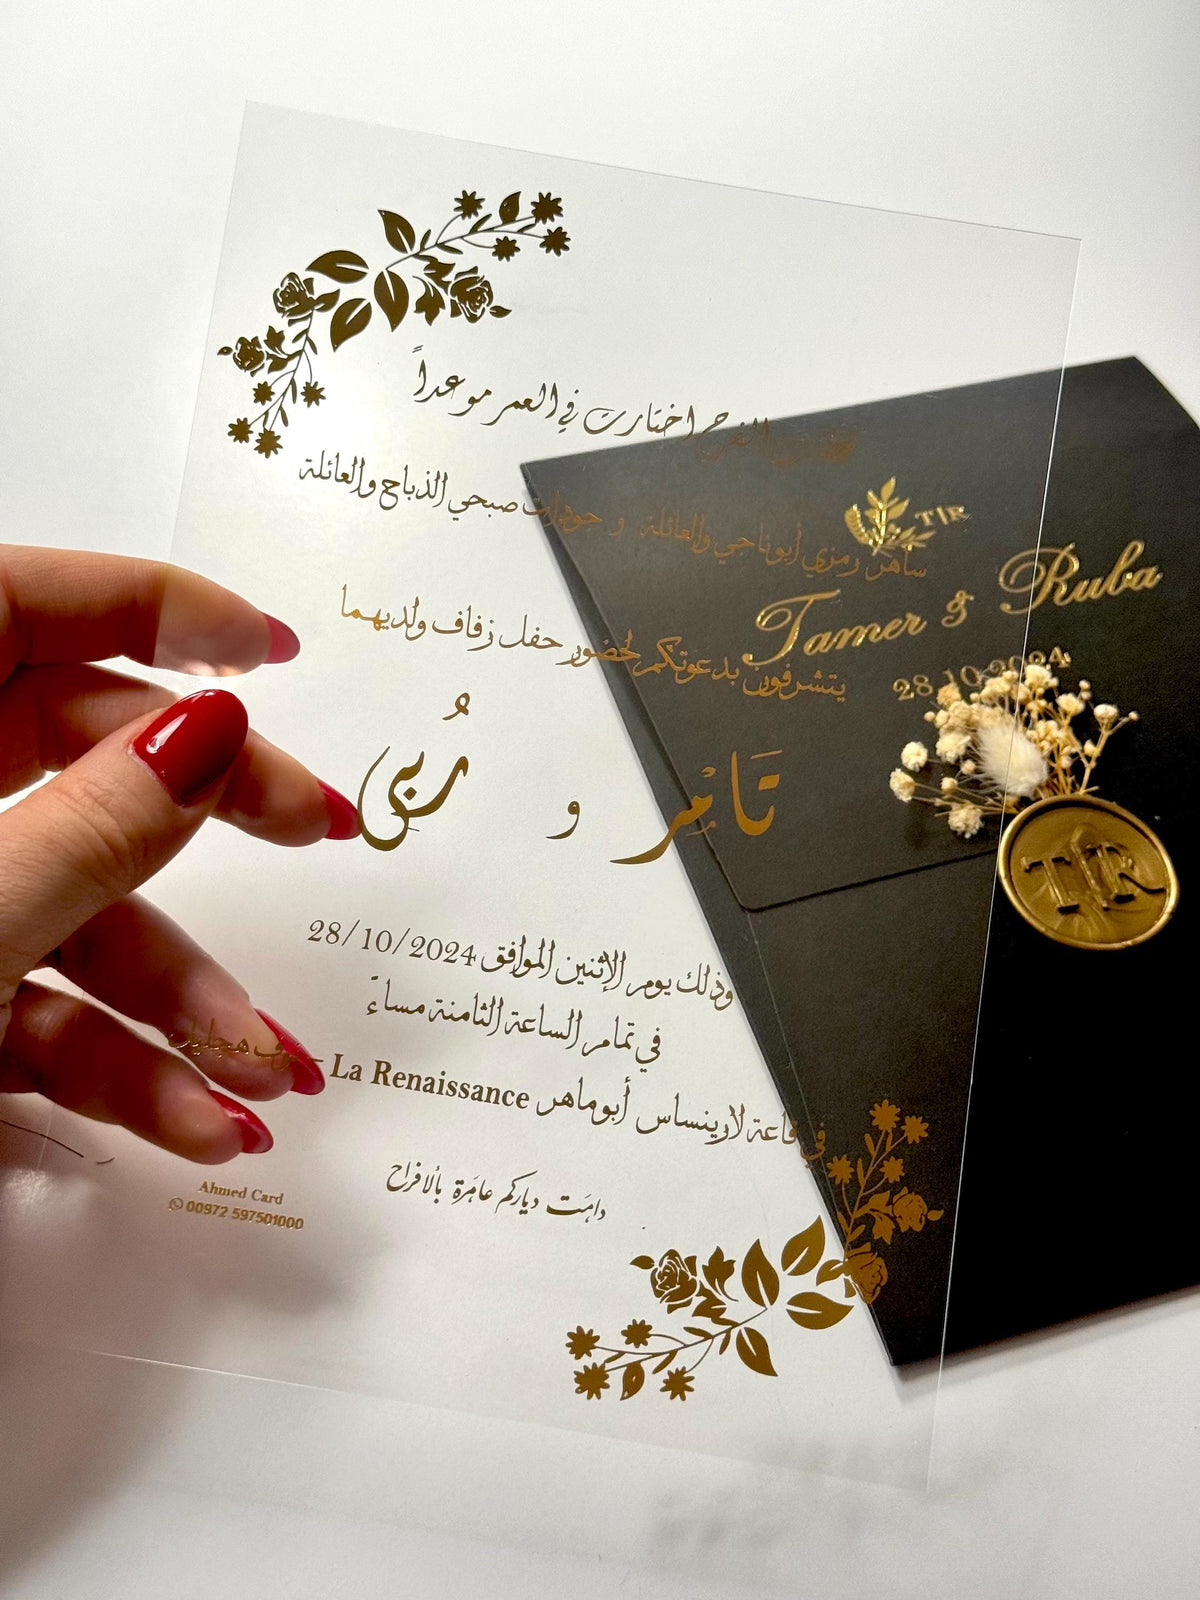 الفرح اختارت في العمر موعداً
ساهر رمزي أبوناجي والعائلة و جودات صبحي الذباح والعائلة
يتشرفون بدعوتكم لحضور حفل زفاف ولديهما
تَامِر و رُبى
وذلك يوم الإثنين الموافق 28/10/2024
في تمام الساعة الثامنة مساءً
في قاعة لارينساس أبوماهر La Renaissance – هجليل
دامَت دياركم عامَرة بألافراح
Ahmed Card
00972 597501000
T|R
Tamer & Ruba
28.10.2024
T|R